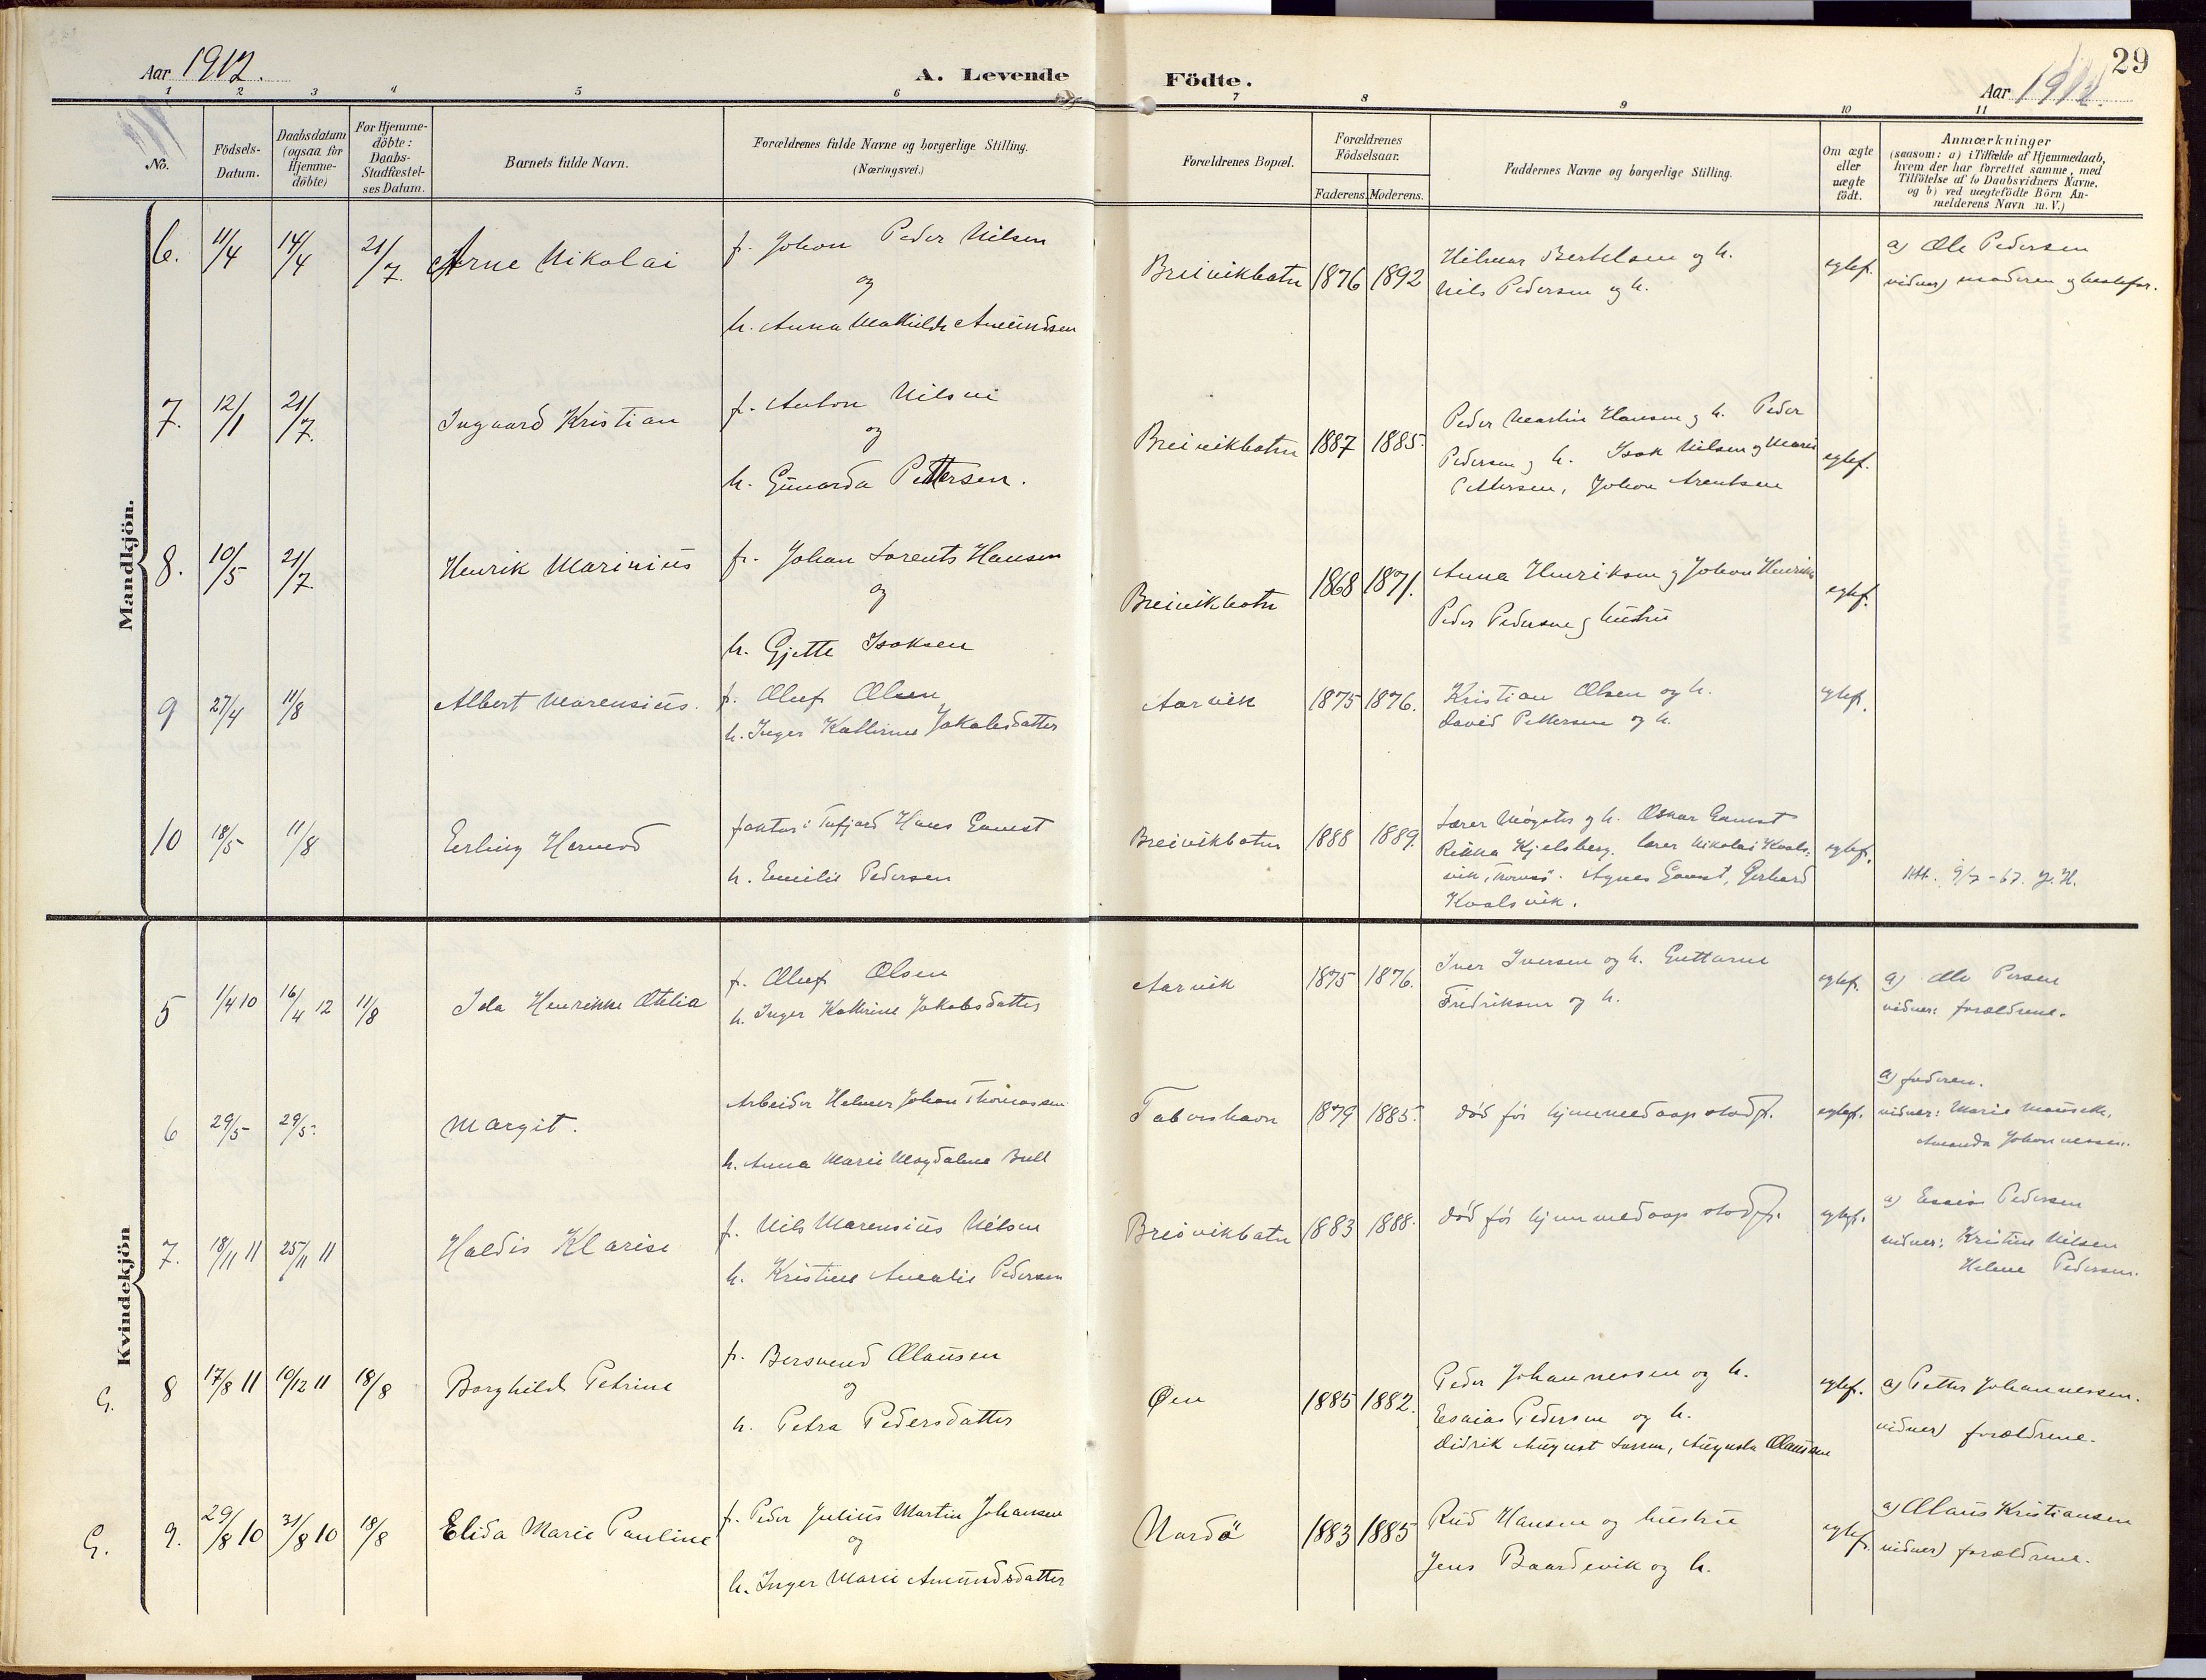 Aar 1912.
A. Levende Födte.
29
Aar 1912.
1 2 3 4 5 6 7 8 9 10 11
No.
Födsels-Datum.
Daabsdatum (ogsaa for Hjemme-döbte)
For Hjemme-döbte: Daabs-Stadfæstel-ses Datum.
Barnets fulde Navn.
Forældrenes fulde Navne og borgerlige Stilling. (Næringsvei.)
Forældrenes Bopæl.
Forældrenes Födselsaar.
Faderens. Moderens.
Faddernes Navne og borgerlige Stilling.
Om ægte eller uægte födt.
Anmærkninger
(saasom: a) i Tilfælde af Hjemmedaab,
hvem der har forrettet samme, med
Tilföielse af to Daabsvidners Navne.
og b) ved uægtefödte Börn An-
melderens Navn m. V.)
Mandkjön.
6. 11/4 14/4 21/7. Arne Nikolai
f. Johan Peder Nilsen
og
h. Anna Mathilde Amundsen
Breivikbotn 1876 1892
Hilmar Bertelsen og h.
Nils Pedersen og h.
egtef.
a) Ole Pedersen
vidner) moderen og bestefar.
7. 12/1 21/7. Ingvard Kristian
f. Anton Nilsen
og
h. Gunarda Pettersen.
Breivikbotn 1887 1885.
Peder Martin Hansen og h. Peder
Pedersen og h. Isak Nilsen og Marie
Pettersen, Johan Arentsen
egtef.
8. 10/5 21/7. Henrik Marinius
f. Johan Lorents Hansen
og
h. Gjette Isaksen
Breivikbotn 1868 1871.
Anna Henriksen og Johan Henriks
Peder Pedersen og hustru
egtef.
9 27/4 11/8 Albert Marensius.
f. Oluf Olsen
h. Inger Kathrine Jakobsdatter
Aarvik 1875 1876.
Kristian Olsen og h.
David Pettersen og h.
egtef.
10 18/5 11/8 Erling Hermod
faktor i Tufjord Hans Gamst
h. Emilie Pedersen
Breivikbotn 1888 1889.
Lærer Mögster og h. Oskar Gamst
Rikka Kjelsberg. lærer Nikolai Kvals-
vik, Tromsö. Agnes Gamst, Gerhard
Kvalsvik.
egtef.
Att. 9/7-67. J.H.
Kvindekjön
5 1/4 10 16/4 12 11/8 Ida Henrikke Otelia
f. Oluf Olsen
h. Inger Kathrine Jakobsdatter
Aarvik 1875 1876.
Iver Iversen og h. Guttorm
Fredriksen og h.
egtef.
a) Ole Persen
vidner: forældrene.
6 29/5 29/5. Margit.
Arbeider Helmer Johan Thomassen
h. Anna Marie Magdalena Bull
Tabershavn 1879 1885.
död för hjemmedaap stadf.
egtef.
a) faderen.
vidner: Marie
Amanda Johannessen.
7. 18/11 11 25/11 11 Haldis Klarise
f. Nils Marensius Nilsen
h. Kristine Amalie Pedersen
Breivikbotn 1883 1888.
död för hjemmedaap stadf.
egtef.
a) Esaias Pedersen
vidner: Kristine Nilsen
Helene Pedersen.
G. 8 17/8 11 10/12 11 18/8 Borghild Petrine
f. Bersvend Olaussen
og
h. Petra Pedersdatter
Øen 1885 1882.
Peder Johannessen og h.
Esaias Pedersen og h.
Didrik August Larsen, Augusta Olaussen
egtef.
a) Petter Johannessen.
vidner) forældrene.
G. 9. 29/8 10 31/8 10 18/8 Elida Marie Pauline
f. Peder Julius Martin Johansen
og
h. Inger Marie Amundsdatter
Nordö 1883 1885
Rud Hansen og hustru
Jens Baardsvik og h.
egtef.
a) Olaus Kristiansen
vidner) forældrene.